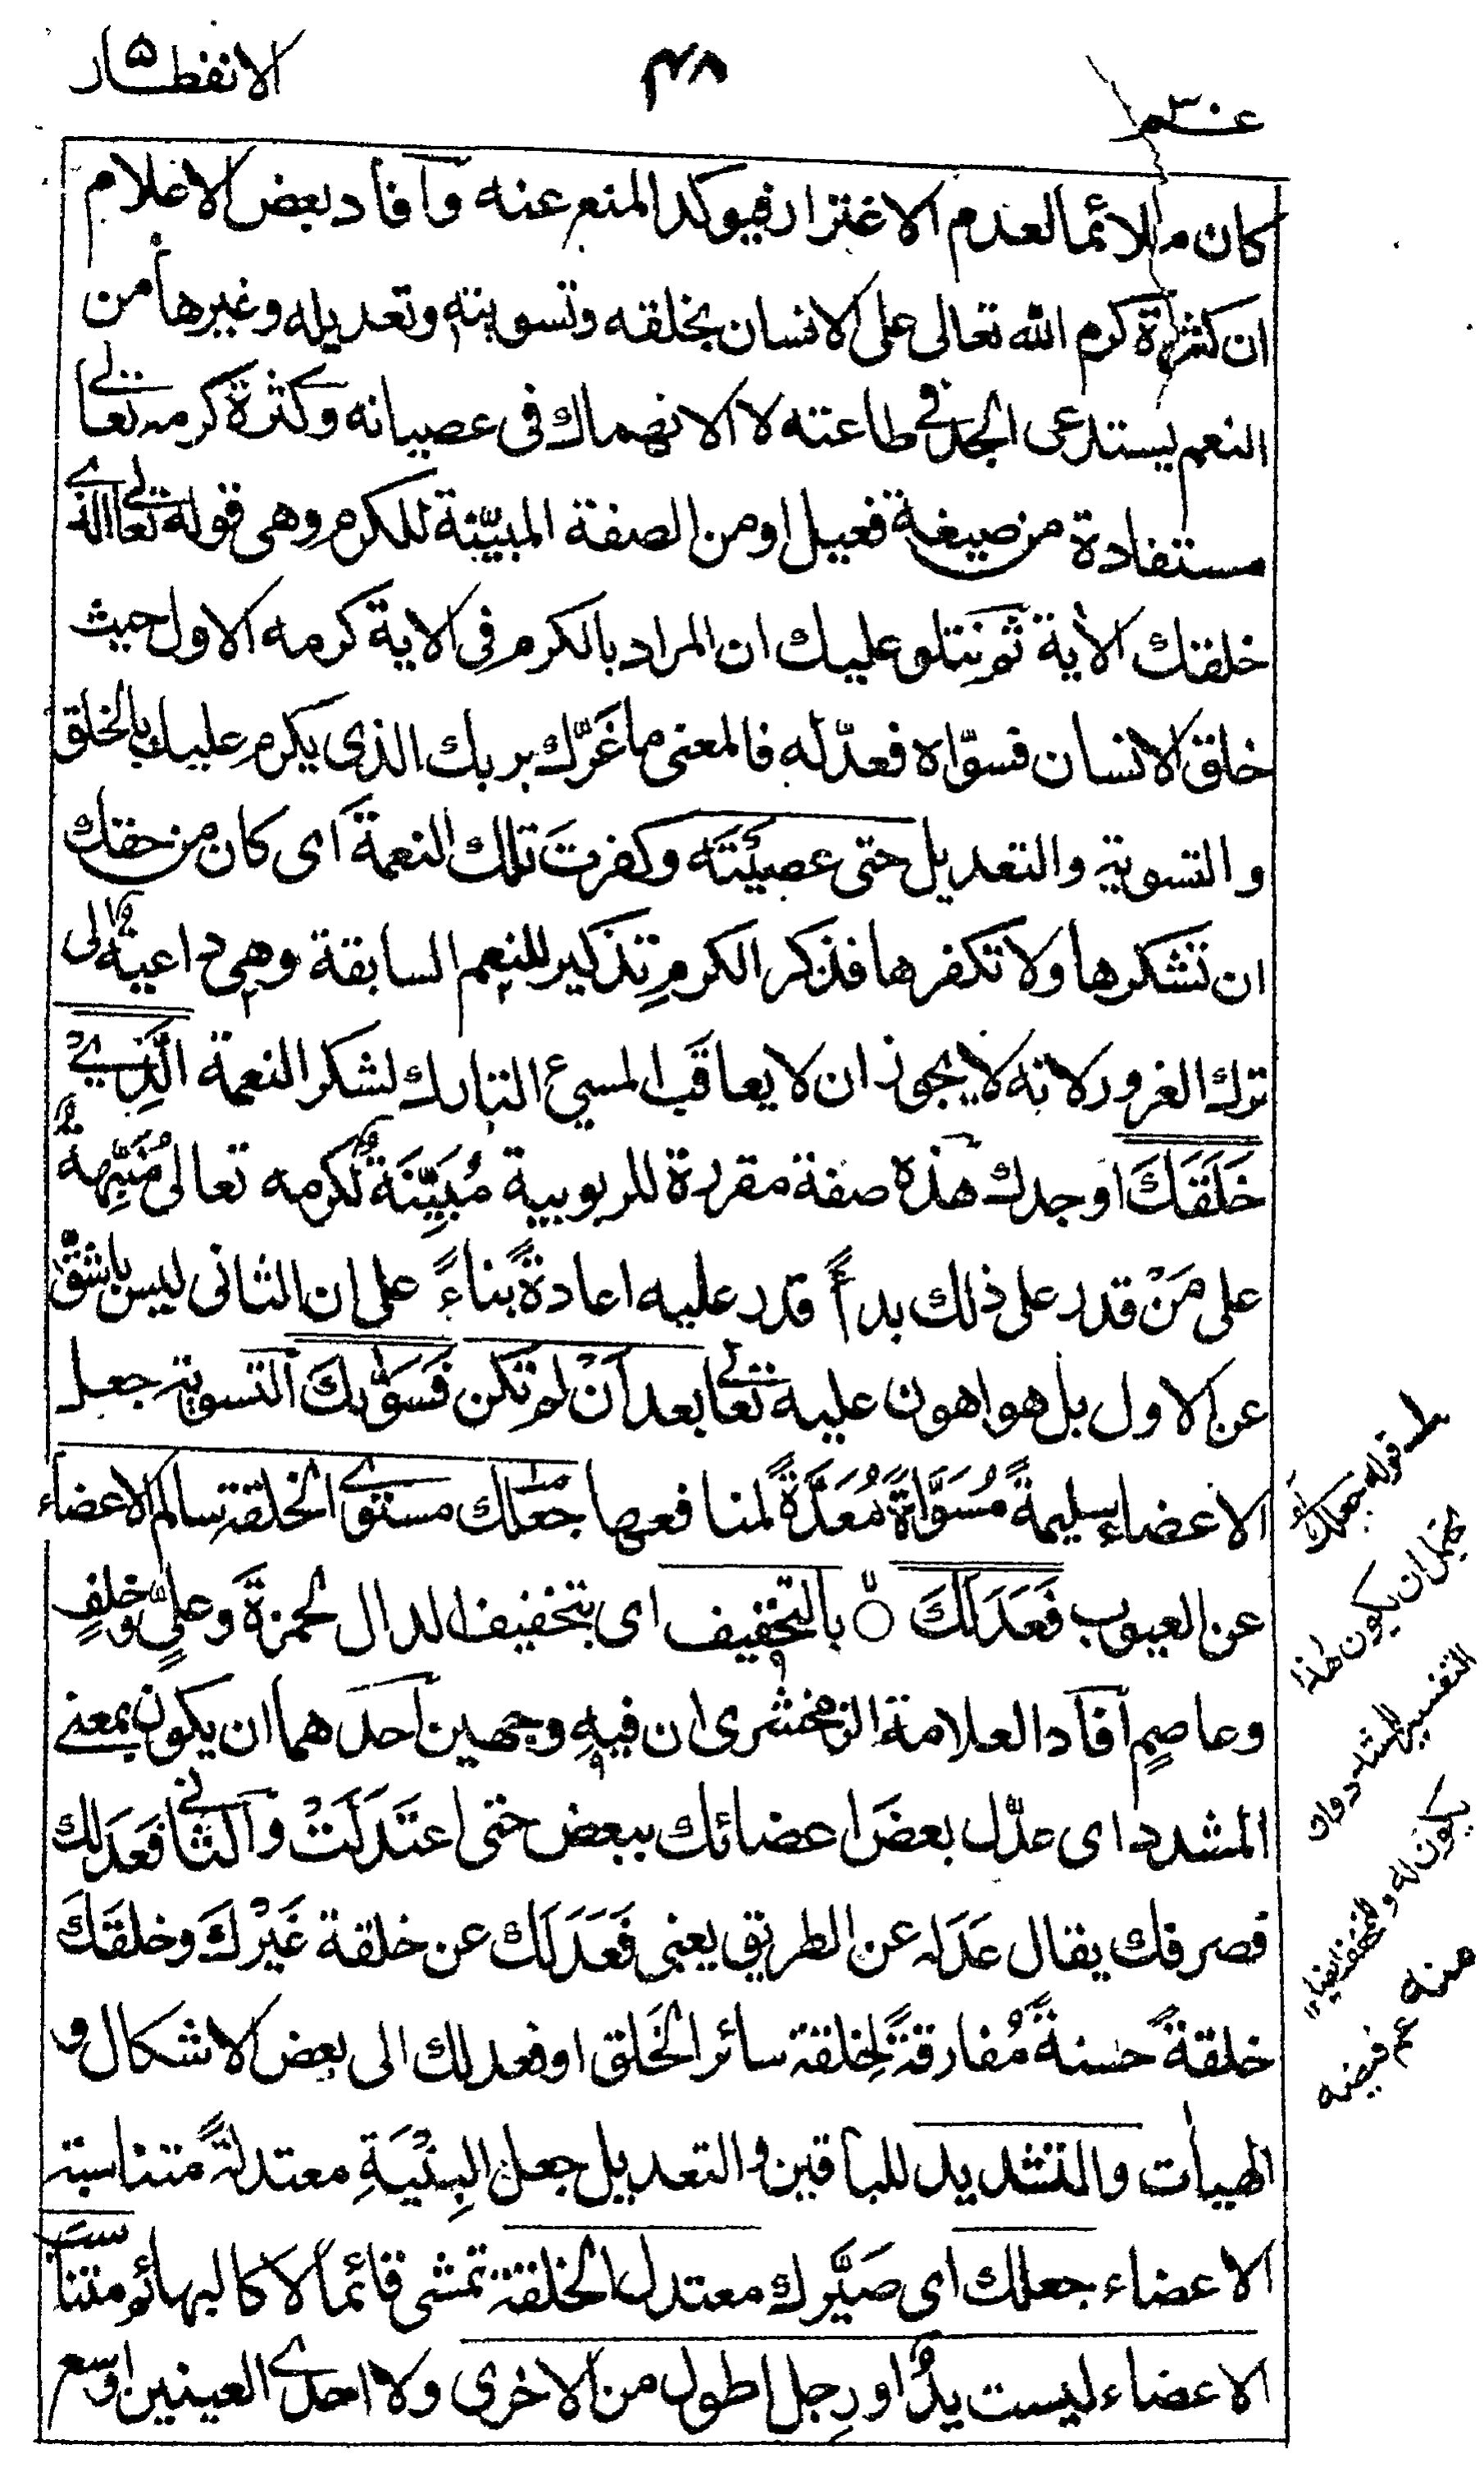 عـم ٣٠ ٤٨ الانفطـار ٥
كان ملائما لعدم الاغترار فيوكد المنع عنه وافاد بعض الاعلام
ان كثرة كرم الله تعالى على الانسان بخلقه وتسويته وتعديله وغيرها من
النعم يستدعى الجد فى طاعته لا الانهماك فى عصيانه وكثرة كرمه تعالى
مستفادة من صيغة فعيل او من الصفة المبيّنة للكرم وهى قوله تعالى الذى
خلقك الأية ثم نتلو عليك ان المراد بالكرم فى الاية كرمه الاول حيث
خلق الانسان فسوّاه فعدّله فالمعنى ما غَرَّك بربك الذى يكرم عليك بالخلق
والتسوية والتعديل حتى عصيتَه وكفرتَ تلك النعمة اى كان من حقك
ان تشكرها ولا تكفرها فذكر الكرمِ تذكير للنعم السابقة وهى داعية الى
ترك الغرور لانه لا يجوز ان لا يعاقَب المسيئ التارك لشكر النعمة الَّذِىْ
خَلَقَكَ اوجدك هذه صفة مقررة للربوبية مُبَيِّنَةٌ لكرمه تعالى مُنَبِّهةٌ
على مَنْ قدر على ذلك بدأً قدر عليه اعادةً بناءً على ان الثانى ليس باشقَّ
عن الاول بل هو اهون عليه تعالى بعد اَنْ لم تكن فَسَوّٰىكَ التسوية جعل
الاعضاء سليمةً مُسَوَّاةً مُعَدَّةً لمنافعها جعلك مستوى الخلقة سالم الاعضاء
عن العيوب فَعَدَلَكَ ○ بالتخفيف اى بتخفيف الدال لحمزةَ وعلىٍّ وخلفٍ
وعاصمٍ افاد العلامة الزمخشرى ان فيه وجهين احدهما ان يكون بمعنى
المشدد اى عدّل بعضَ اعضائك ببعض حتى اعتَدَلَتْ والثانى فَعَدَلك
فصرفك يقال عَدَله عن الطريق يعنى فَعَدَلَك عن خلقة غَيْرك وخلقَكَ
خلقةً حسنةً مُفارقةً لِخلقة سائر الخَلق او فعدلك الى بعض الاشكال و
الهيأت والتشديد للباقين والتعديل جعل البِنْيَةِ معتدلةً متناسبة
الاعضاء جعلك اى صَيَّرك معتدل الخلقة تمشى قائماً لا كالبهائم متناسب
الاعضاء ليست يدٌ او رِجل اطول من الاخرى ولا احدى العينين اوسع
قوله جعلك
يحتمل ان يكون هذا
التفسير للمشدد وان
يكون له وللمخفف ايضاً
منه عم فيضه